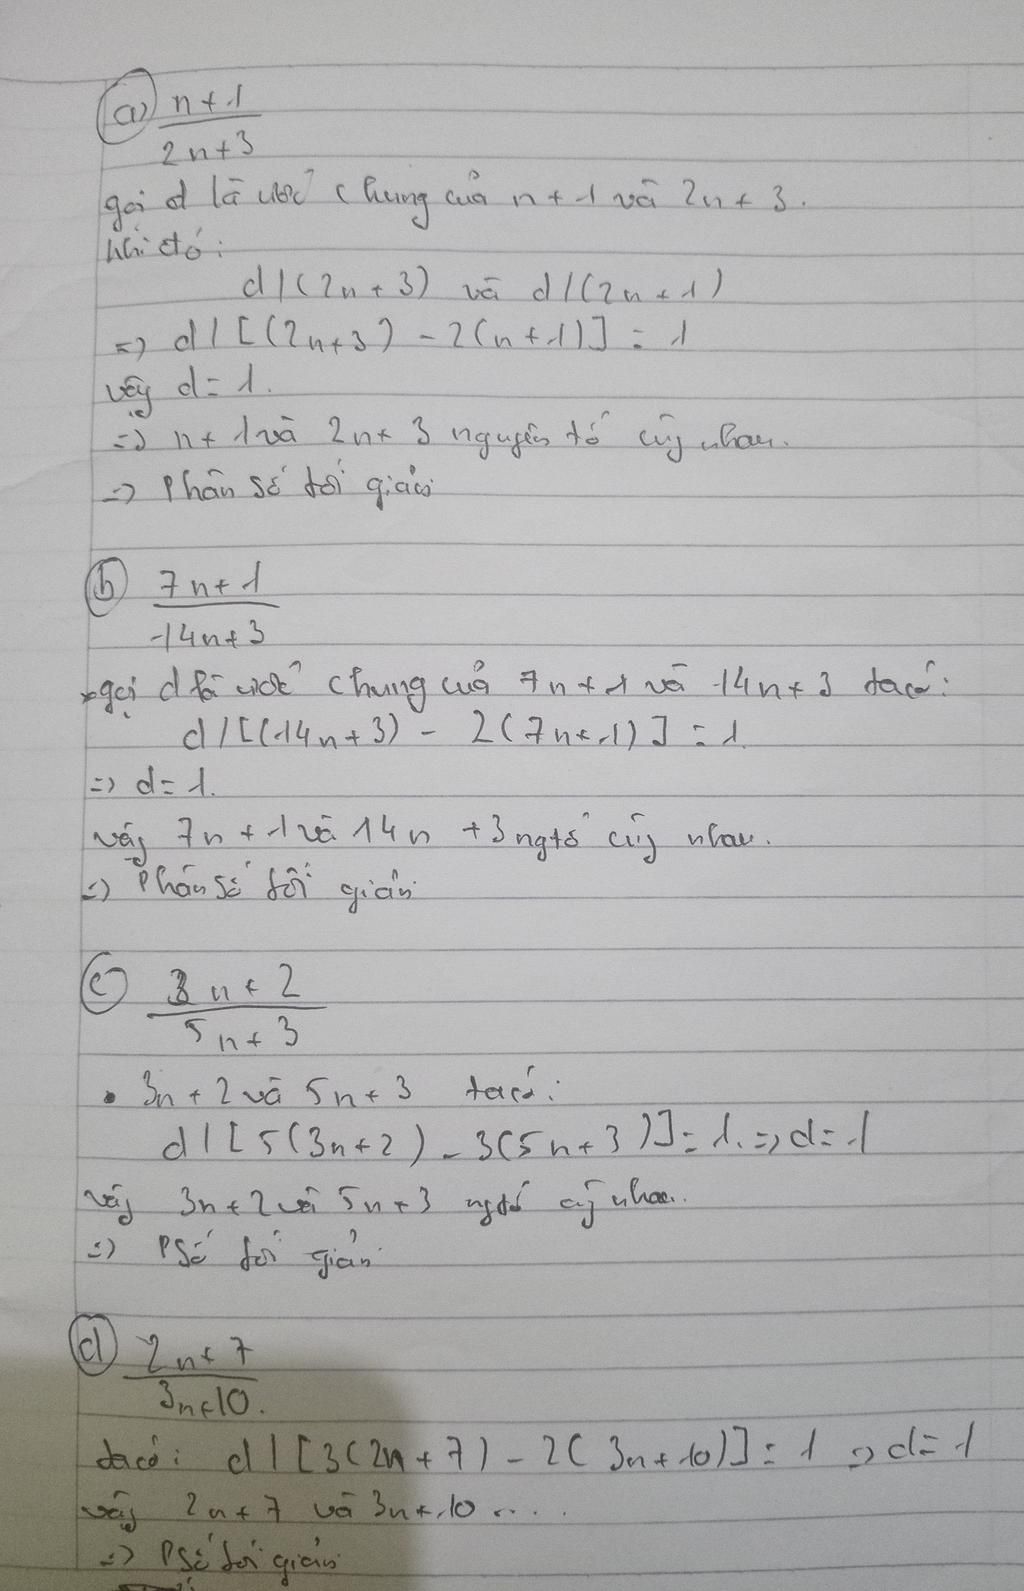 a) n+1
2n+3
gọi d là ước chung của n+1 và 2n+3.
khi đó:
d|(2n+3) và d|(2n+1)
=> d|[(2n+3) - 2(n+1)] = 1
vậy d=1.
=> n+1 và 2n+3 nguyên tố cùng nhau.
=> Phân số tối giản
b) 7n+1
14n+3
*gọi d là ước chung của 7n+1 và 14n+3 ta có:
d|[(14n+3) - 2(7n+1)] = 1.
=> d=1.
vậy 7n+1 và 14n+3 ngtố cùng nhau.
=> Phân số tối giản
c) 3n+2
5n+3
• 3n+2 và 5n+3 ta có:
d|[5(3n+2) - 3(5n+3)] = 1. => d=1
vậy 3n+2 và 5n+3 ngtố cùng nhau.
=> PSố tối giản
d) 2n+7
3n+10.
ta có: d|[3(2n+7) - 2(3n+10)] = 1 => d=1
vậy 2n+7 và 3n+10 ....
=> PSố tối giản